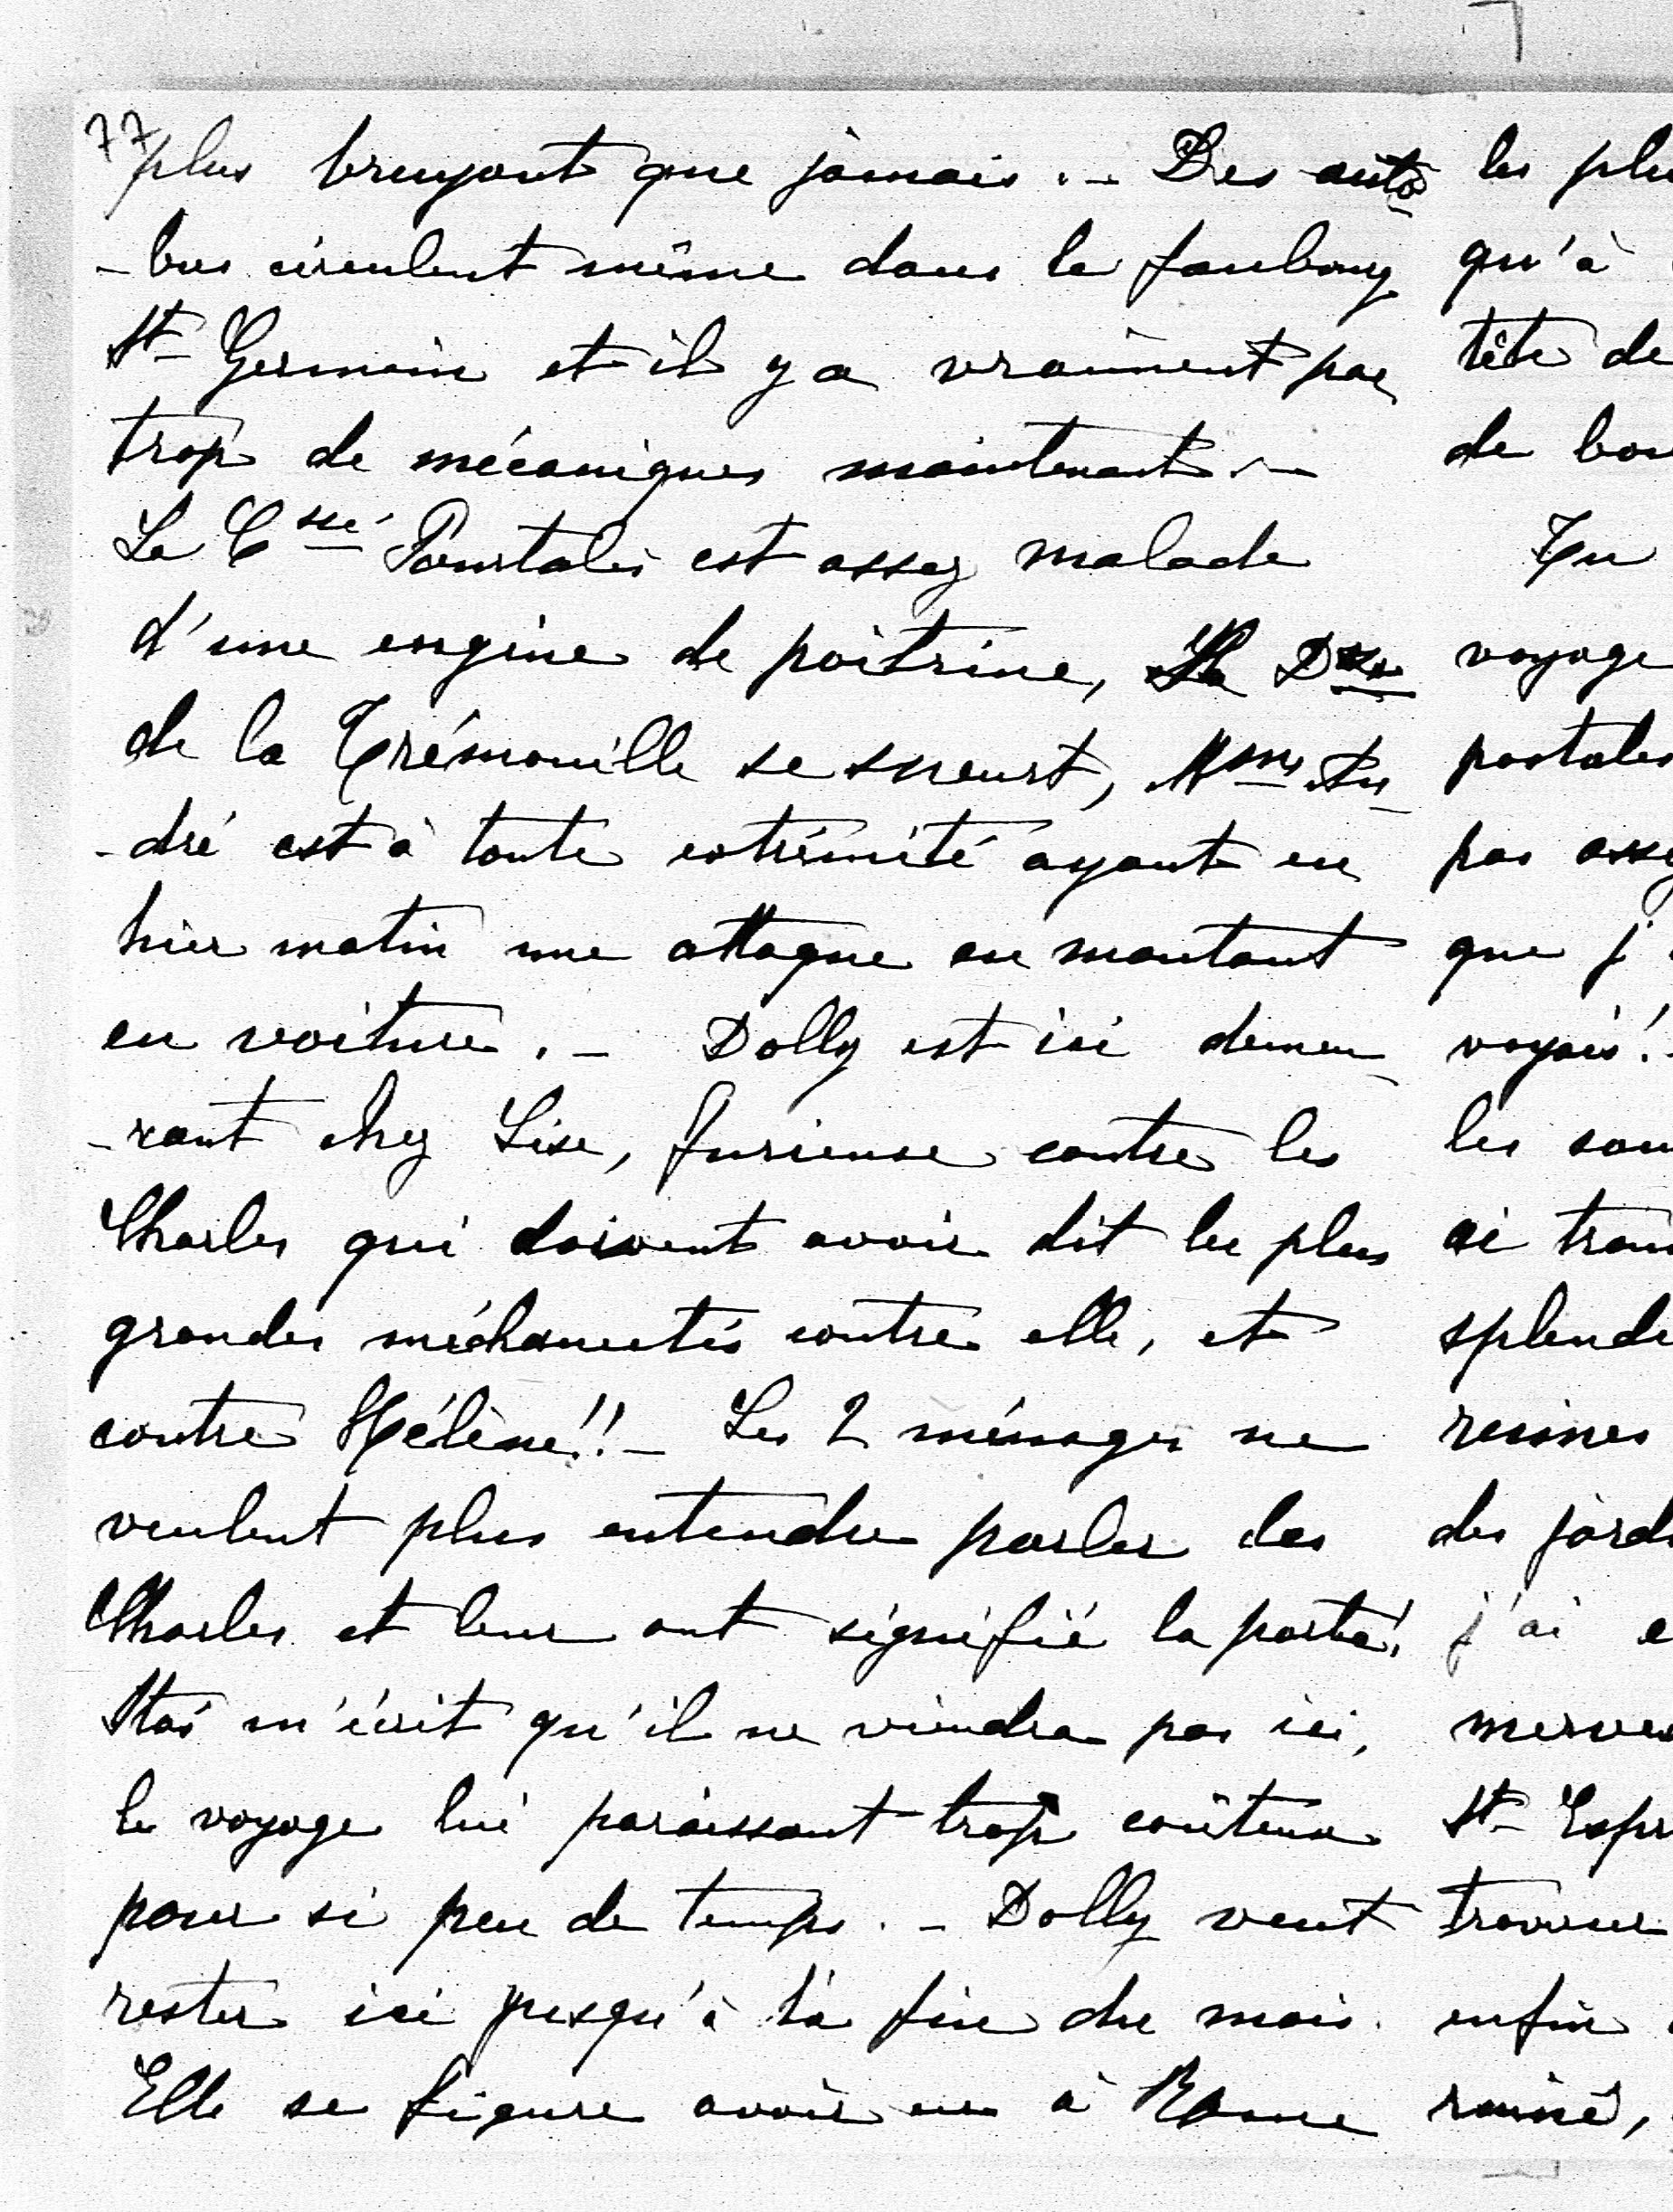 77
plus bruyant que jamais. – Des auto
-bus circulent même dans le faubourg
St Germain et il y a vraiment par
trop de mécaniques maintenant. –
La Csse Pourtalès est assez malade
d'une engine de poitrine, la Dsse
de la Trémouille se meurt, Mme An
-dré est à toute extrémité ayant eu
hier matin une attaque en montant
en voiture. – Dolly est ici demeu
-rant chez Lise, furieuse contre les
Charles qui doivent avoir dit les plus
grandes méchancetés contre elle, et
contre Hélène!! – Les 2 ménages ne
veulent plus entendre parler des
Charles et leur ont signifié la porte!
Stas m'écrit qu'il ne viendra pas ici,
le voyage lui paraissant trop coûteux
pour si peu de temps. – Dolly veut
rester ici jusqu'à la fin du mois.
Elle se figure avoir eu à Rome
les
qu'à
tête de
de
Tu
voyage
postales
pas
que j'
voyais!
les
ai
ruines
des
j'ai
St
enfin
ruiné,